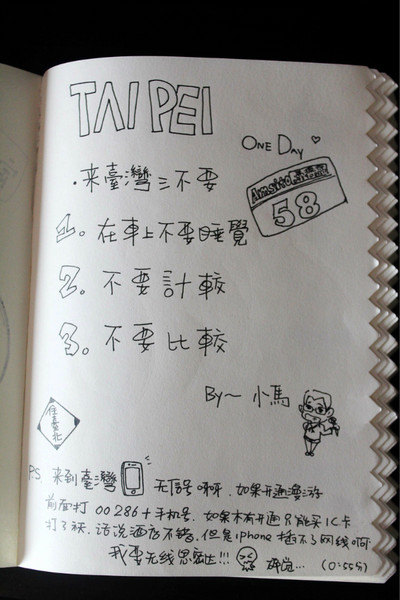 TAIPEI
ONE DAY
·来臺灣三不要
58
1。在車上不要睡覺
2。不要計較
3。不要比較
By~ 小馬
P.S 来到臺灣 无信号呀呀.如果开通漫游
前面打 00286+手机号.如果木有开通只能买IC卡
打了秌.话说酒店不错.但是iphone 插不了网线啊
我要无线思密达!!! 碎觉… (0:55分)